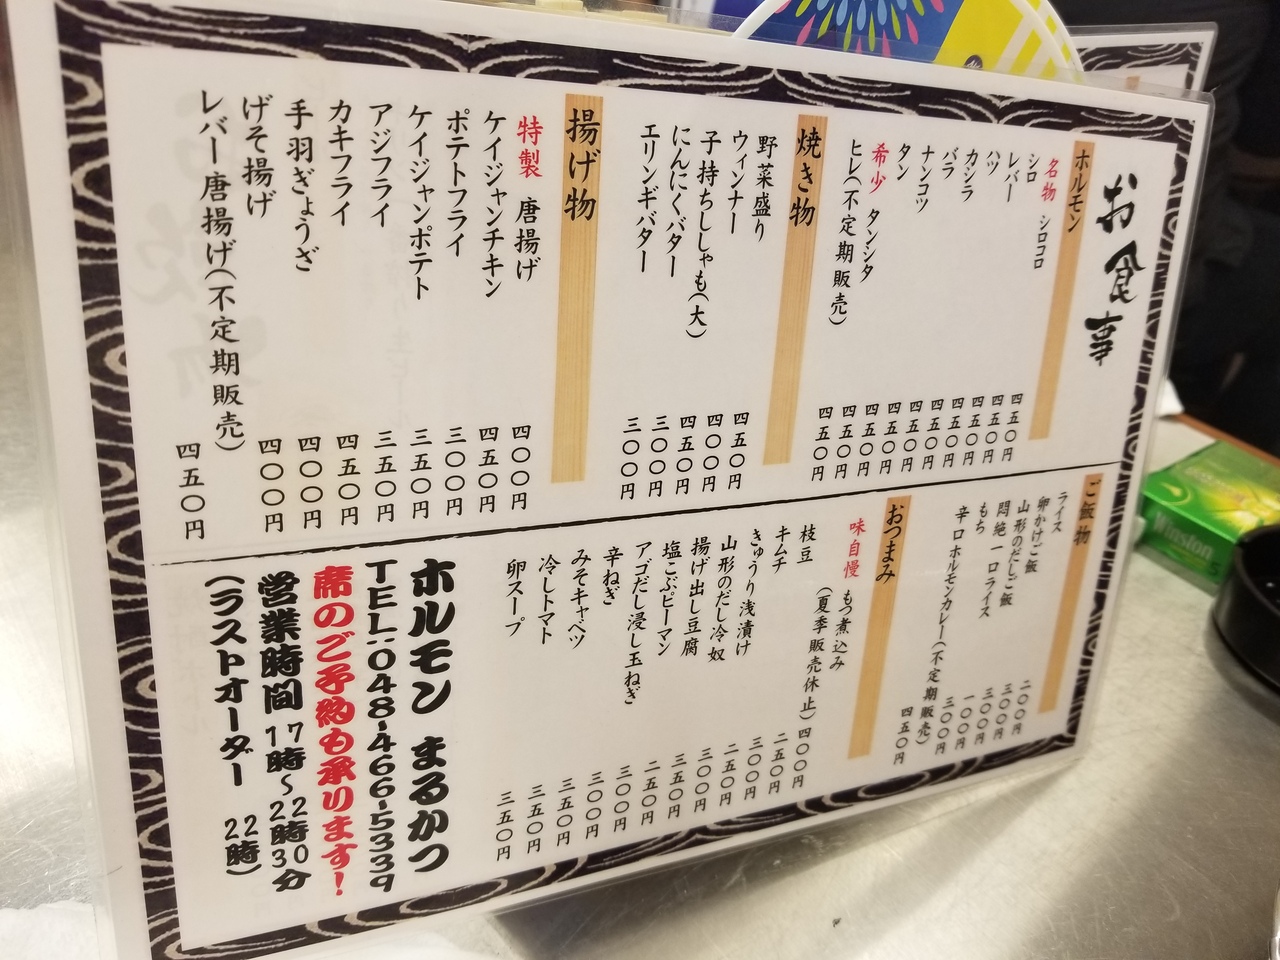 お食事
ホルモン
名物 シロコロ 四五〇円
シロ 四五〇円
レバー 四五〇円
ハツ 四五〇円
カシラ 四五〇円
バラ 四五〇円
ナンコツ 四五〇円
タン 四五〇円
希少 タンシタ 四五〇円
ヒレ(不定期販売) 四五〇円
焼き物
野菜盛り 四五〇円
ウィンナー 四〇〇円
子持ちししゃも(大) 四五〇円
にんにくバター 三〇〇円
エリンギバター 三〇〇円
揚げ物
特製 唐揚げ 四〇〇円
ケイジャンチキン 四五〇円
ポテトフライ 三〇〇円
ケイジャンポテト 三五〇円
アジフライ 三五〇円
カキフライ 四五〇円
手羽ぎょうざ 四〇〇円
げそ揚げ 四〇〇円
レバー唐揚げ(不定期販売) 四五〇円
ご飯物
ライス 二〇〇円
卵かけご飯 三〇〇円
山形のだしご飯 三〇〇円
悶絶一口ライス 一〇〇円
もち 三〇〇円
辛口ホルモンカレー(不定期販売) 四五〇円
おつまみ
味自慢 もつ煮込み
(夏季販売休止) 四〇〇円
枝豆 二五〇円
キムチ 三〇〇円
きゅうり浅漬け 二五〇円
山形のだし冷奴 三〇〇円
揚げ出し豆腐 三五〇円
塩こぶピーマン 二五〇円
アゴだし浸し玉ねぎ 三〇〇円
辛ねぎ 三〇〇円
みそキャベツ 三五〇円
冷しトマト 三五〇円
卵スープ 三五〇円
ホルモン まるかつ
TEL:048-466-5339
席のご予約も承ります!
営業時間 17時〜22時30分
(ラストオーダー 22時)
Winston